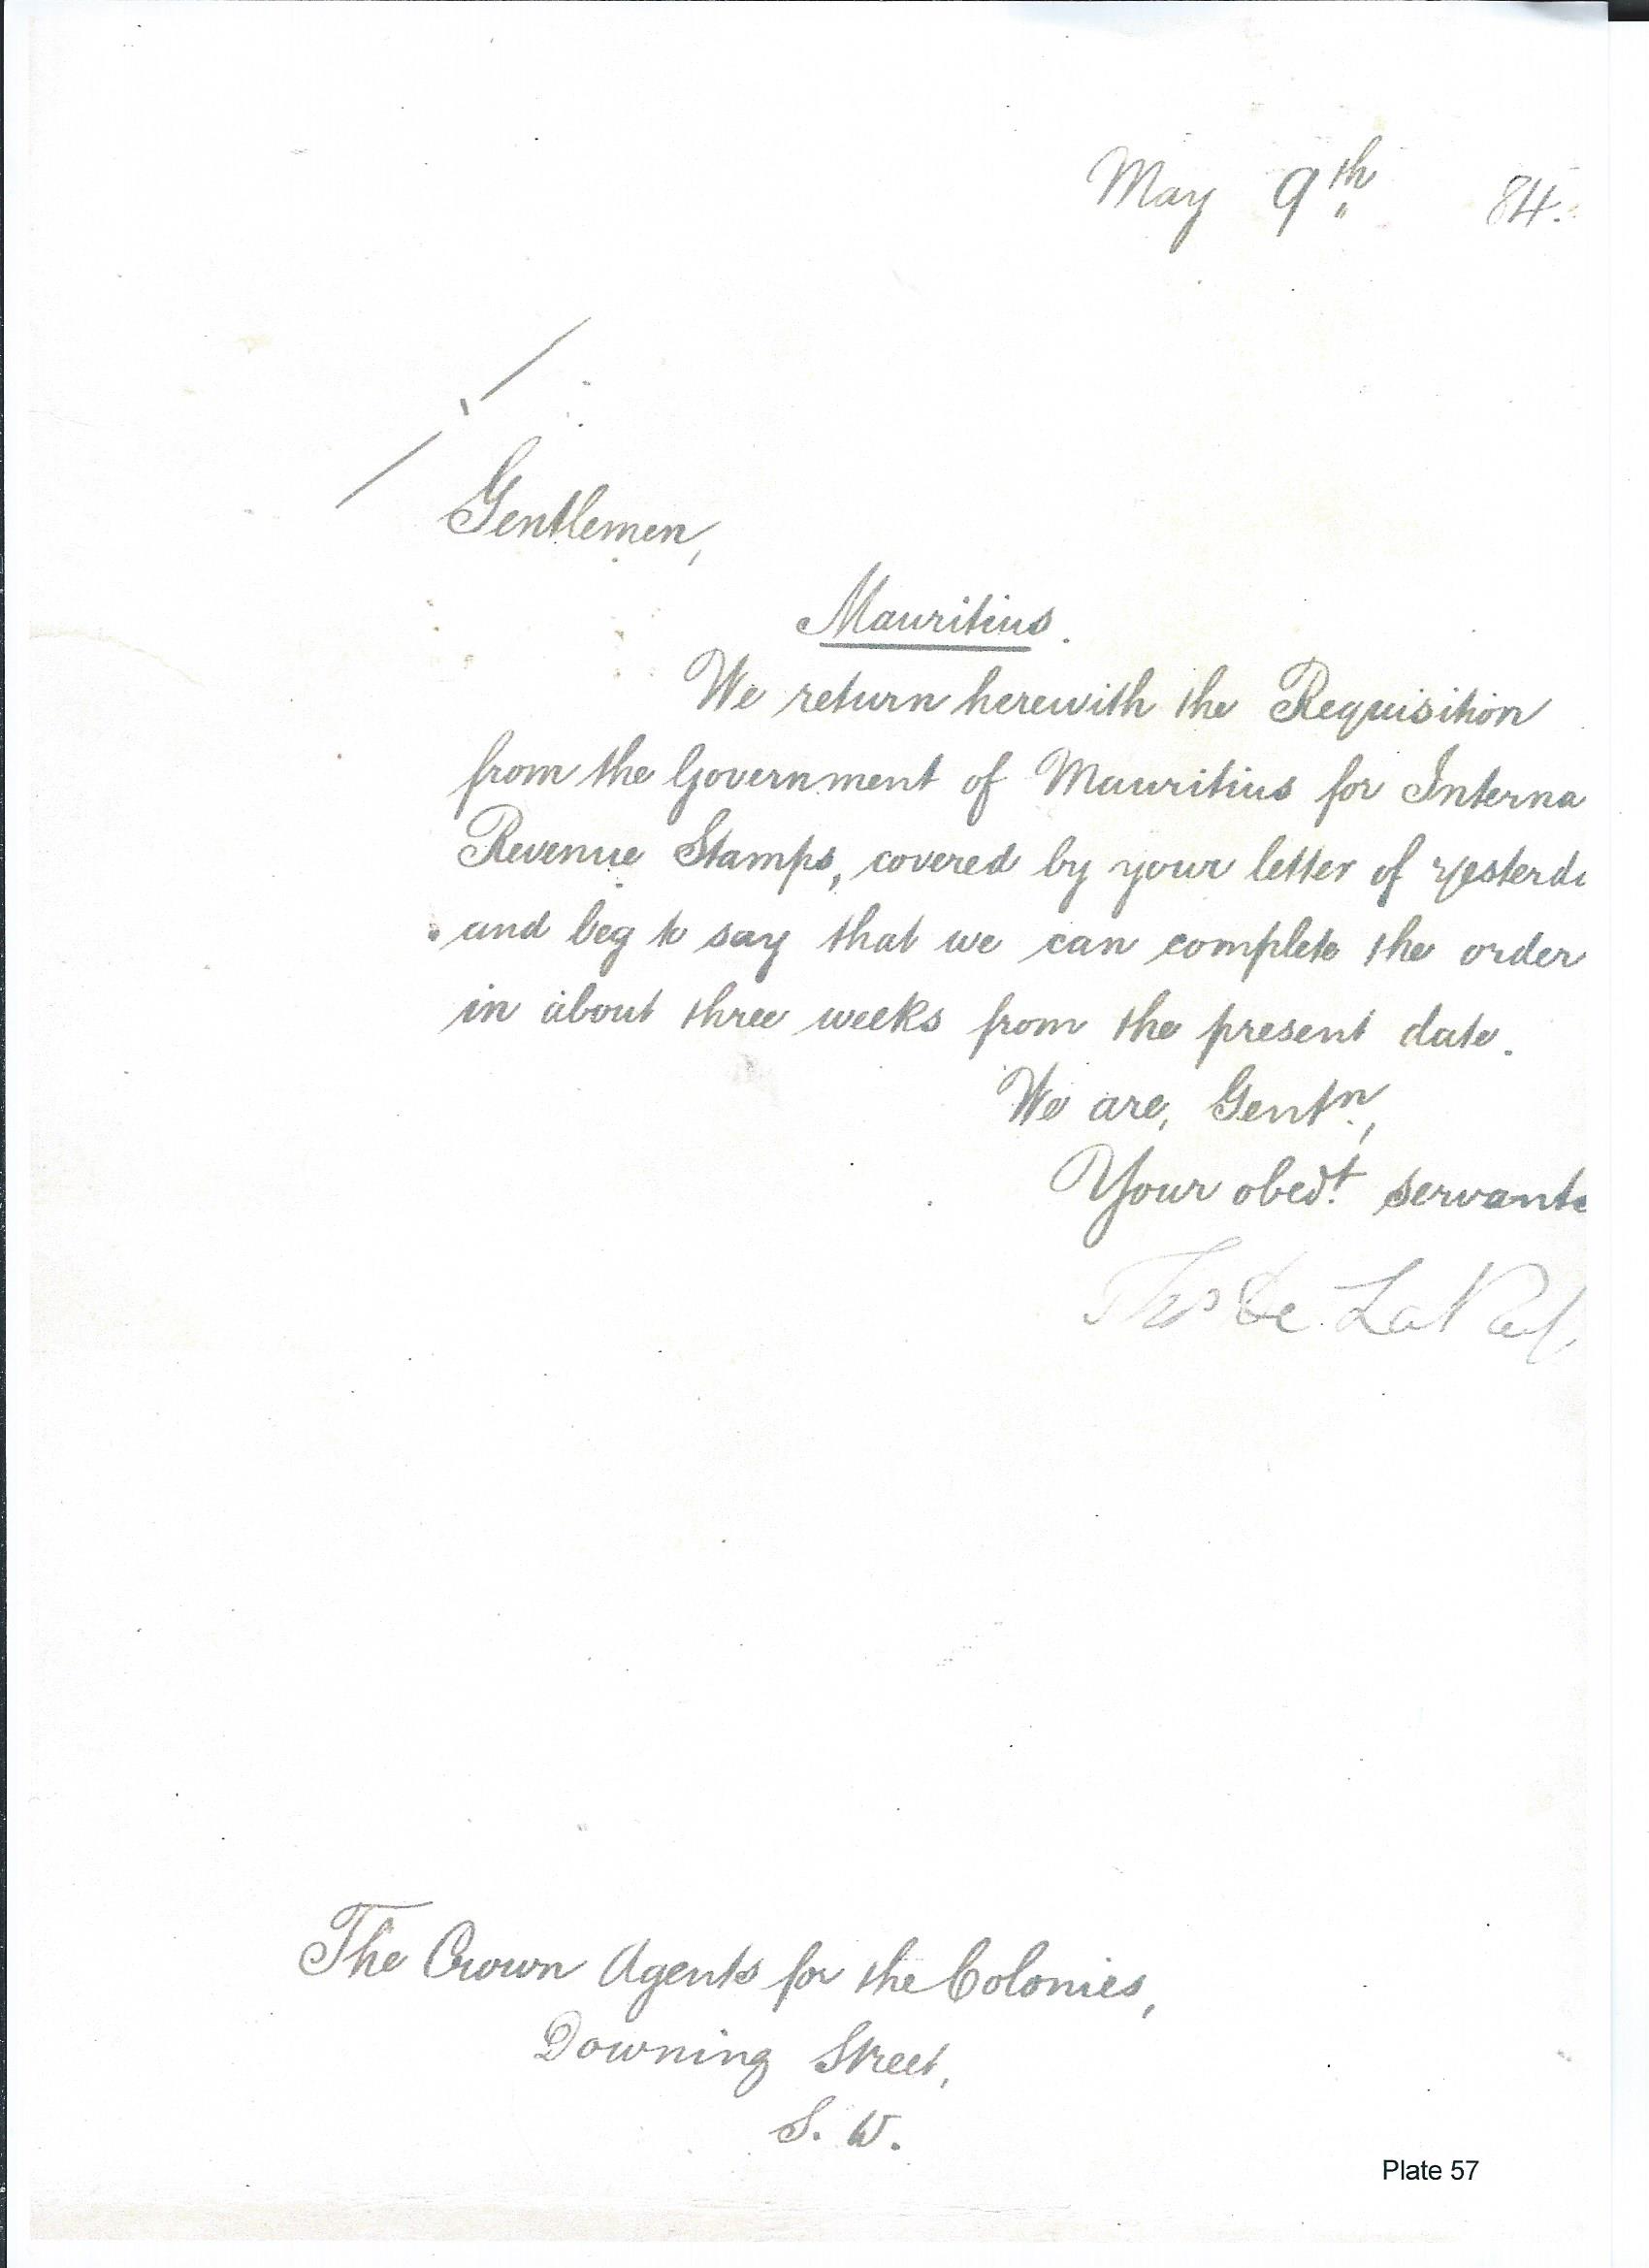 May 9th 84.
Gentlemen,
Mauritius.
We return herewith the Requisition
from the Government of Mauritius for Interna
Revenue Stamps, covered by your letter of yesterd
and beg to say that we can complete the order
in about three weeks from the present date.
We are, Gentn.,
Your obedt. servants
De La Rue
The Crown Agents for the Colonies,
Downing Street,
S. W.
Plate 57